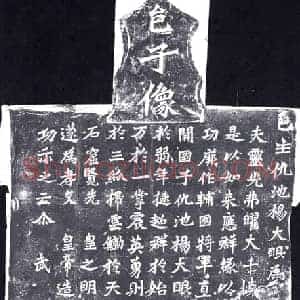 邑子像
邑主仇池楊大眼爲
夫靈光弗曜大千懷
是以如來應群緣以
功厥作輔國將軍直
開國子仇池楊大眼
於弱年挺超群於始
万於一掌震英勇則
於三紛掃雲鯨於天
石窟覽先皇之明
遂爲孝文皇帝造
功示之云尒 武